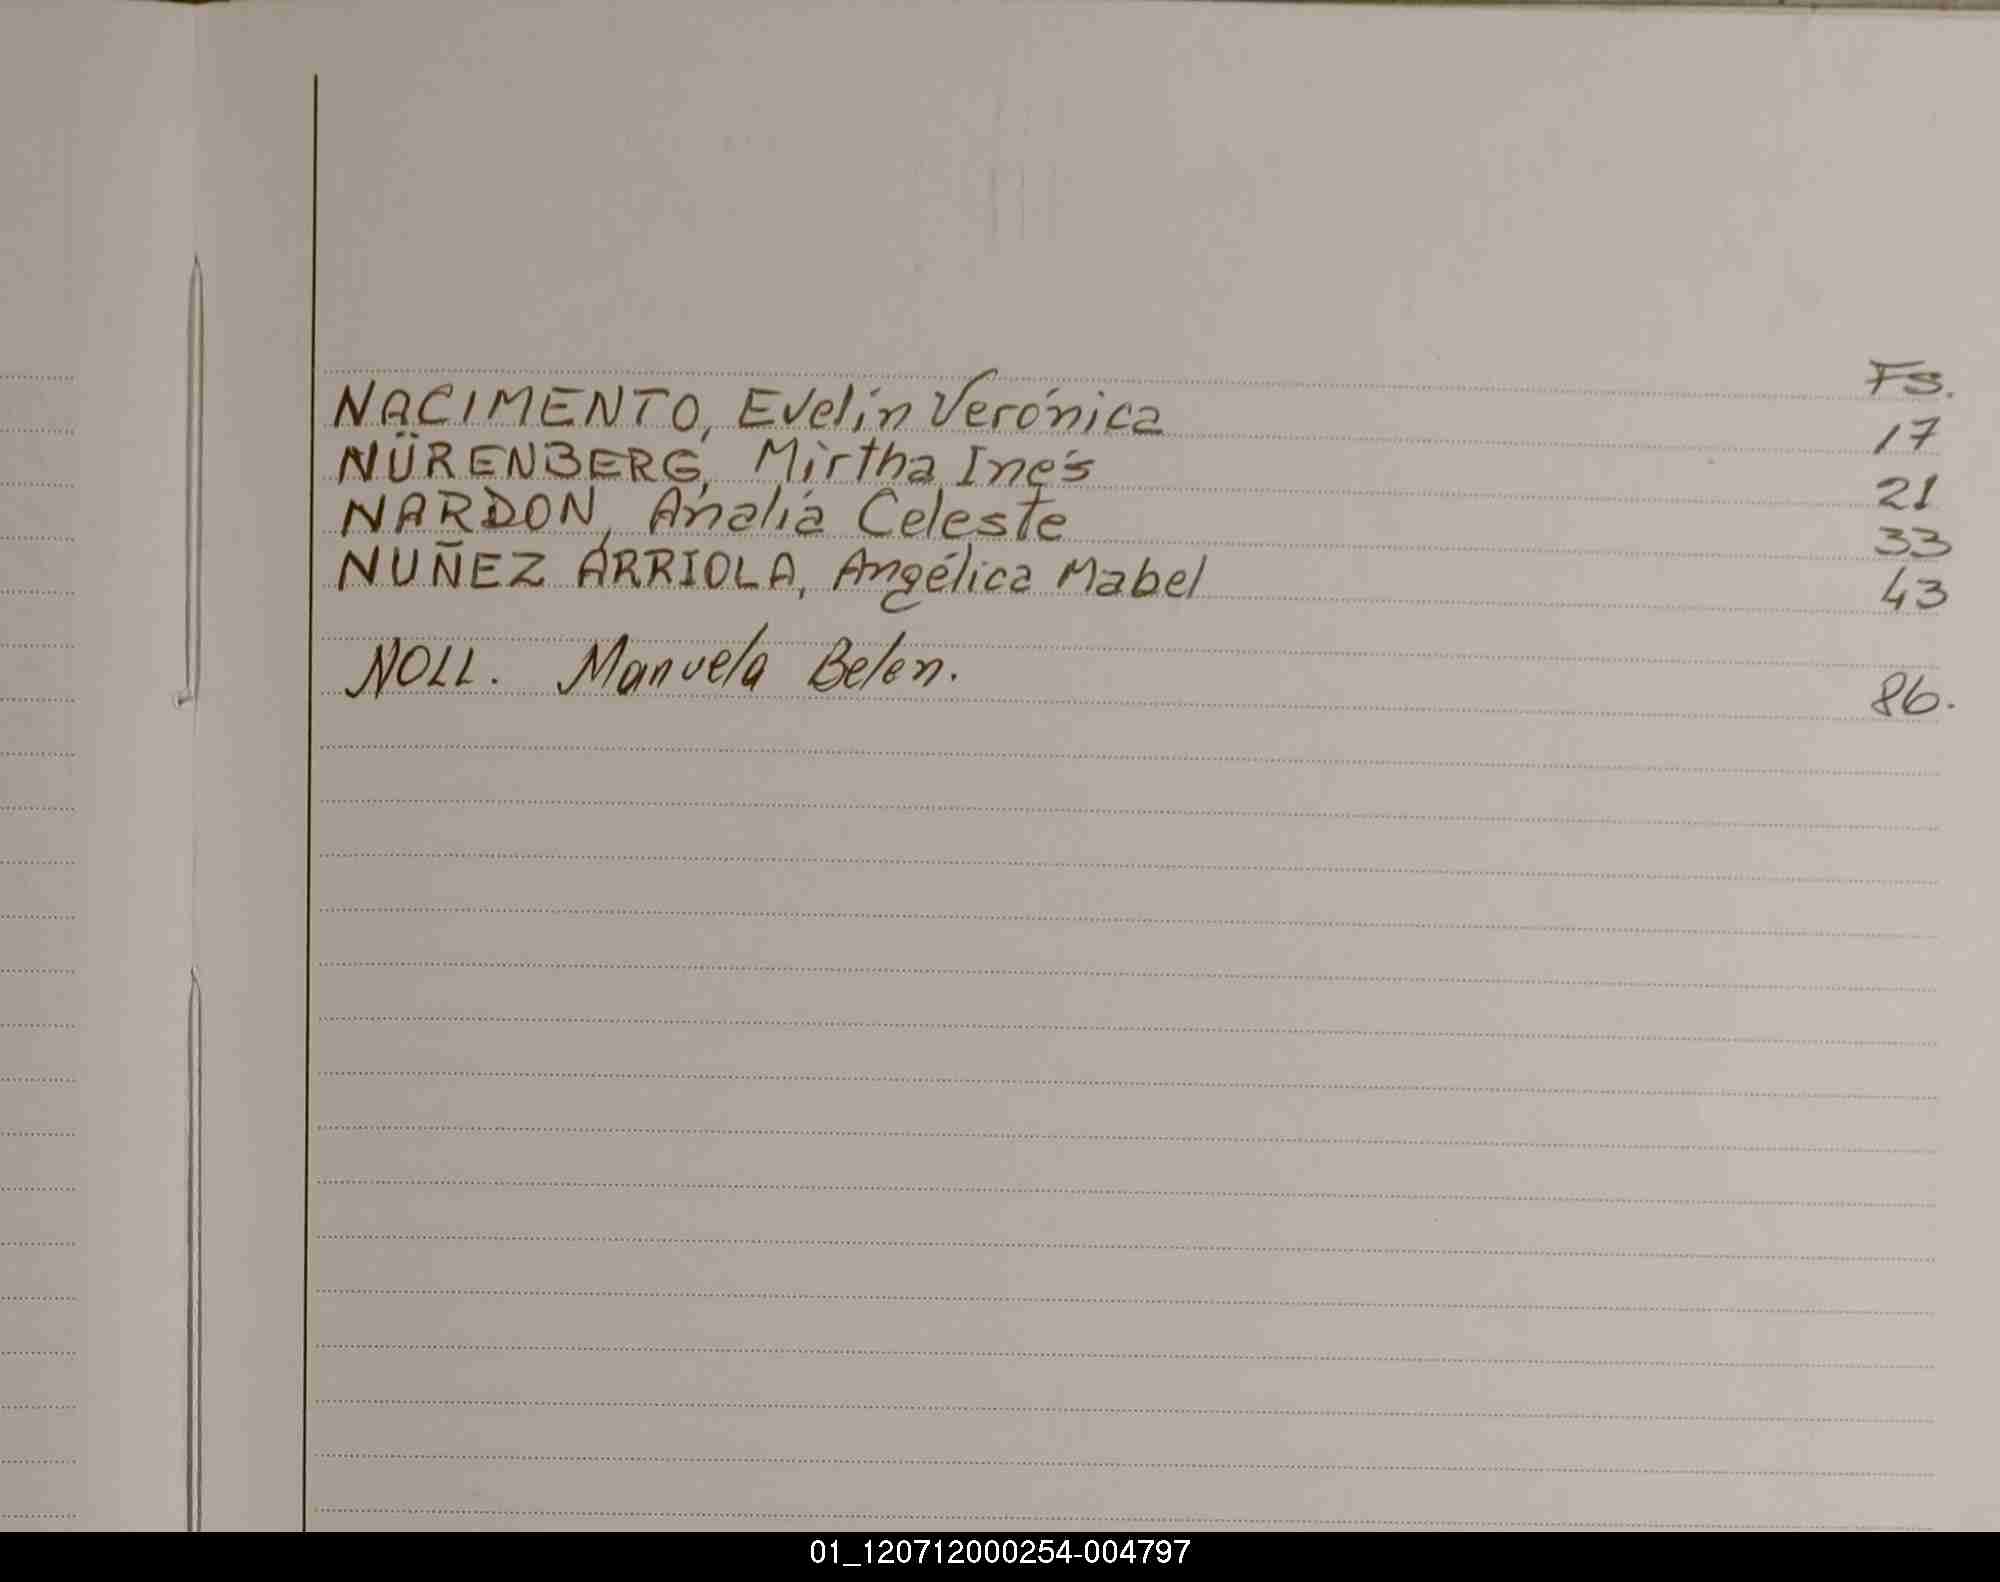 Fs.
NACIMENTO, Evelin Verónica 17
NÜRENBERG, Mirtha Inés 21
NARDON, Analía Celeste 33
NUÑEZ ARRIOLA, Angélica Mabel 43
NOLL. Manuela Belen. 86.
01_120712000254-004797